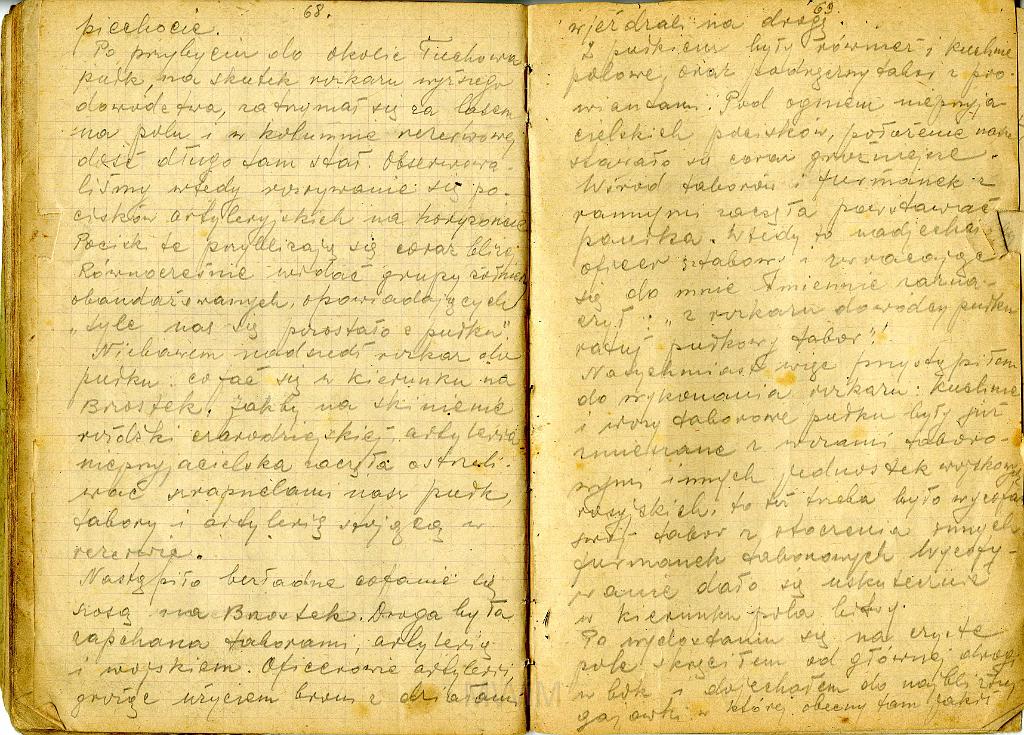 68.
piechocie.
Po przybyciu do okolic Tuchowa
pułk, na skutek rozkazu wyższego
dowództwa, zatrzymał się za lasem
na polu i w kolumnie rezerwowej
dość długo tam stał. Obserwowa-
liśmy wtedy rozrywanie się po-
cisków artyleryjskich na horyzoncie
Pociski te przybliżają się coraz bliżej
Równocześnie widać grupy żołnierzy
obandażowanych, opowiadających
„tyle nas się pozostało z pułku"
Niebawem nadszedł rozkaz dla
pułku: cofać się w kierunku na
Brostek. Jakby na skinienie
różdżki czarodziejskiej, artyleria
nieprzyjacielska zaczęła ostrzeli-
wać szrapnelami nasz pułk,
tabory i artylerię stojącą w
rezerwie.
Nastąpiło bezładne cofanie się
szosą na Brostek. Droga była
zapchana taborami, artylerią
i wojskiem. Oficerowie artylerii,
grożąc użyciem broni z działami
69
wjeżdżali na drogę.
Z pułkiem były również i kuchnie
polowe, oraz podręczny tabor z pro-
wiantami. Pod ogniem nieprzyja-
cielskich pocisków, położenie nasze
stawało się coraz groźniejsze.
Wśród taborów i furmanek z
rannymi zaczęła powstawać
panika. Wtedy to nadjechał
oficer sztabowy i zwracając
się do mnie imiennie zazna-
czył: „z rozkazu dowódcy pułku
ratuj pułkowy tabor"!
Natychmiast więc przystąpiłem
do wykonania rozkazu. Kuchnie
i wozy taborowe pułku były już
zmieszane z wozami taboro-
wymi innych jednostek wojskowych
rosyjskich, to też trzeba było wycofać
swój tabor z otoczenia innych
furmanek taborowych. Wycofy-
wanie dało się uskutecznić
w kierunku pola bitwy.
Po wydostaniu się na czyste
pole skręciłem od głównej drogi
w bok i dojechałem do najbliższej
gajówki w której obecny tam jakiś